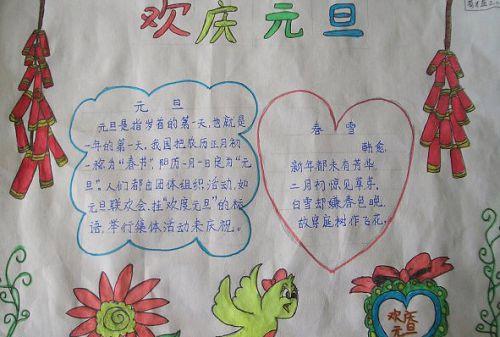 欢庆元旦
元旦
元旦是指岁首的第一天,也就是
一年的第一天,我国把农历正月初
一称为“春节”,阳历一月一日定为“元
旦”。人们都由团体组织活动,如
元旦联欢会,挂“欢度元旦”的标
语,举行集体活动来庆祝。
春雪
韩愈
新年都未有芳华,
二月初惊见草芽。
白雪却嫌春色晚,
故穿庭树作飞花。
欢度
元旦